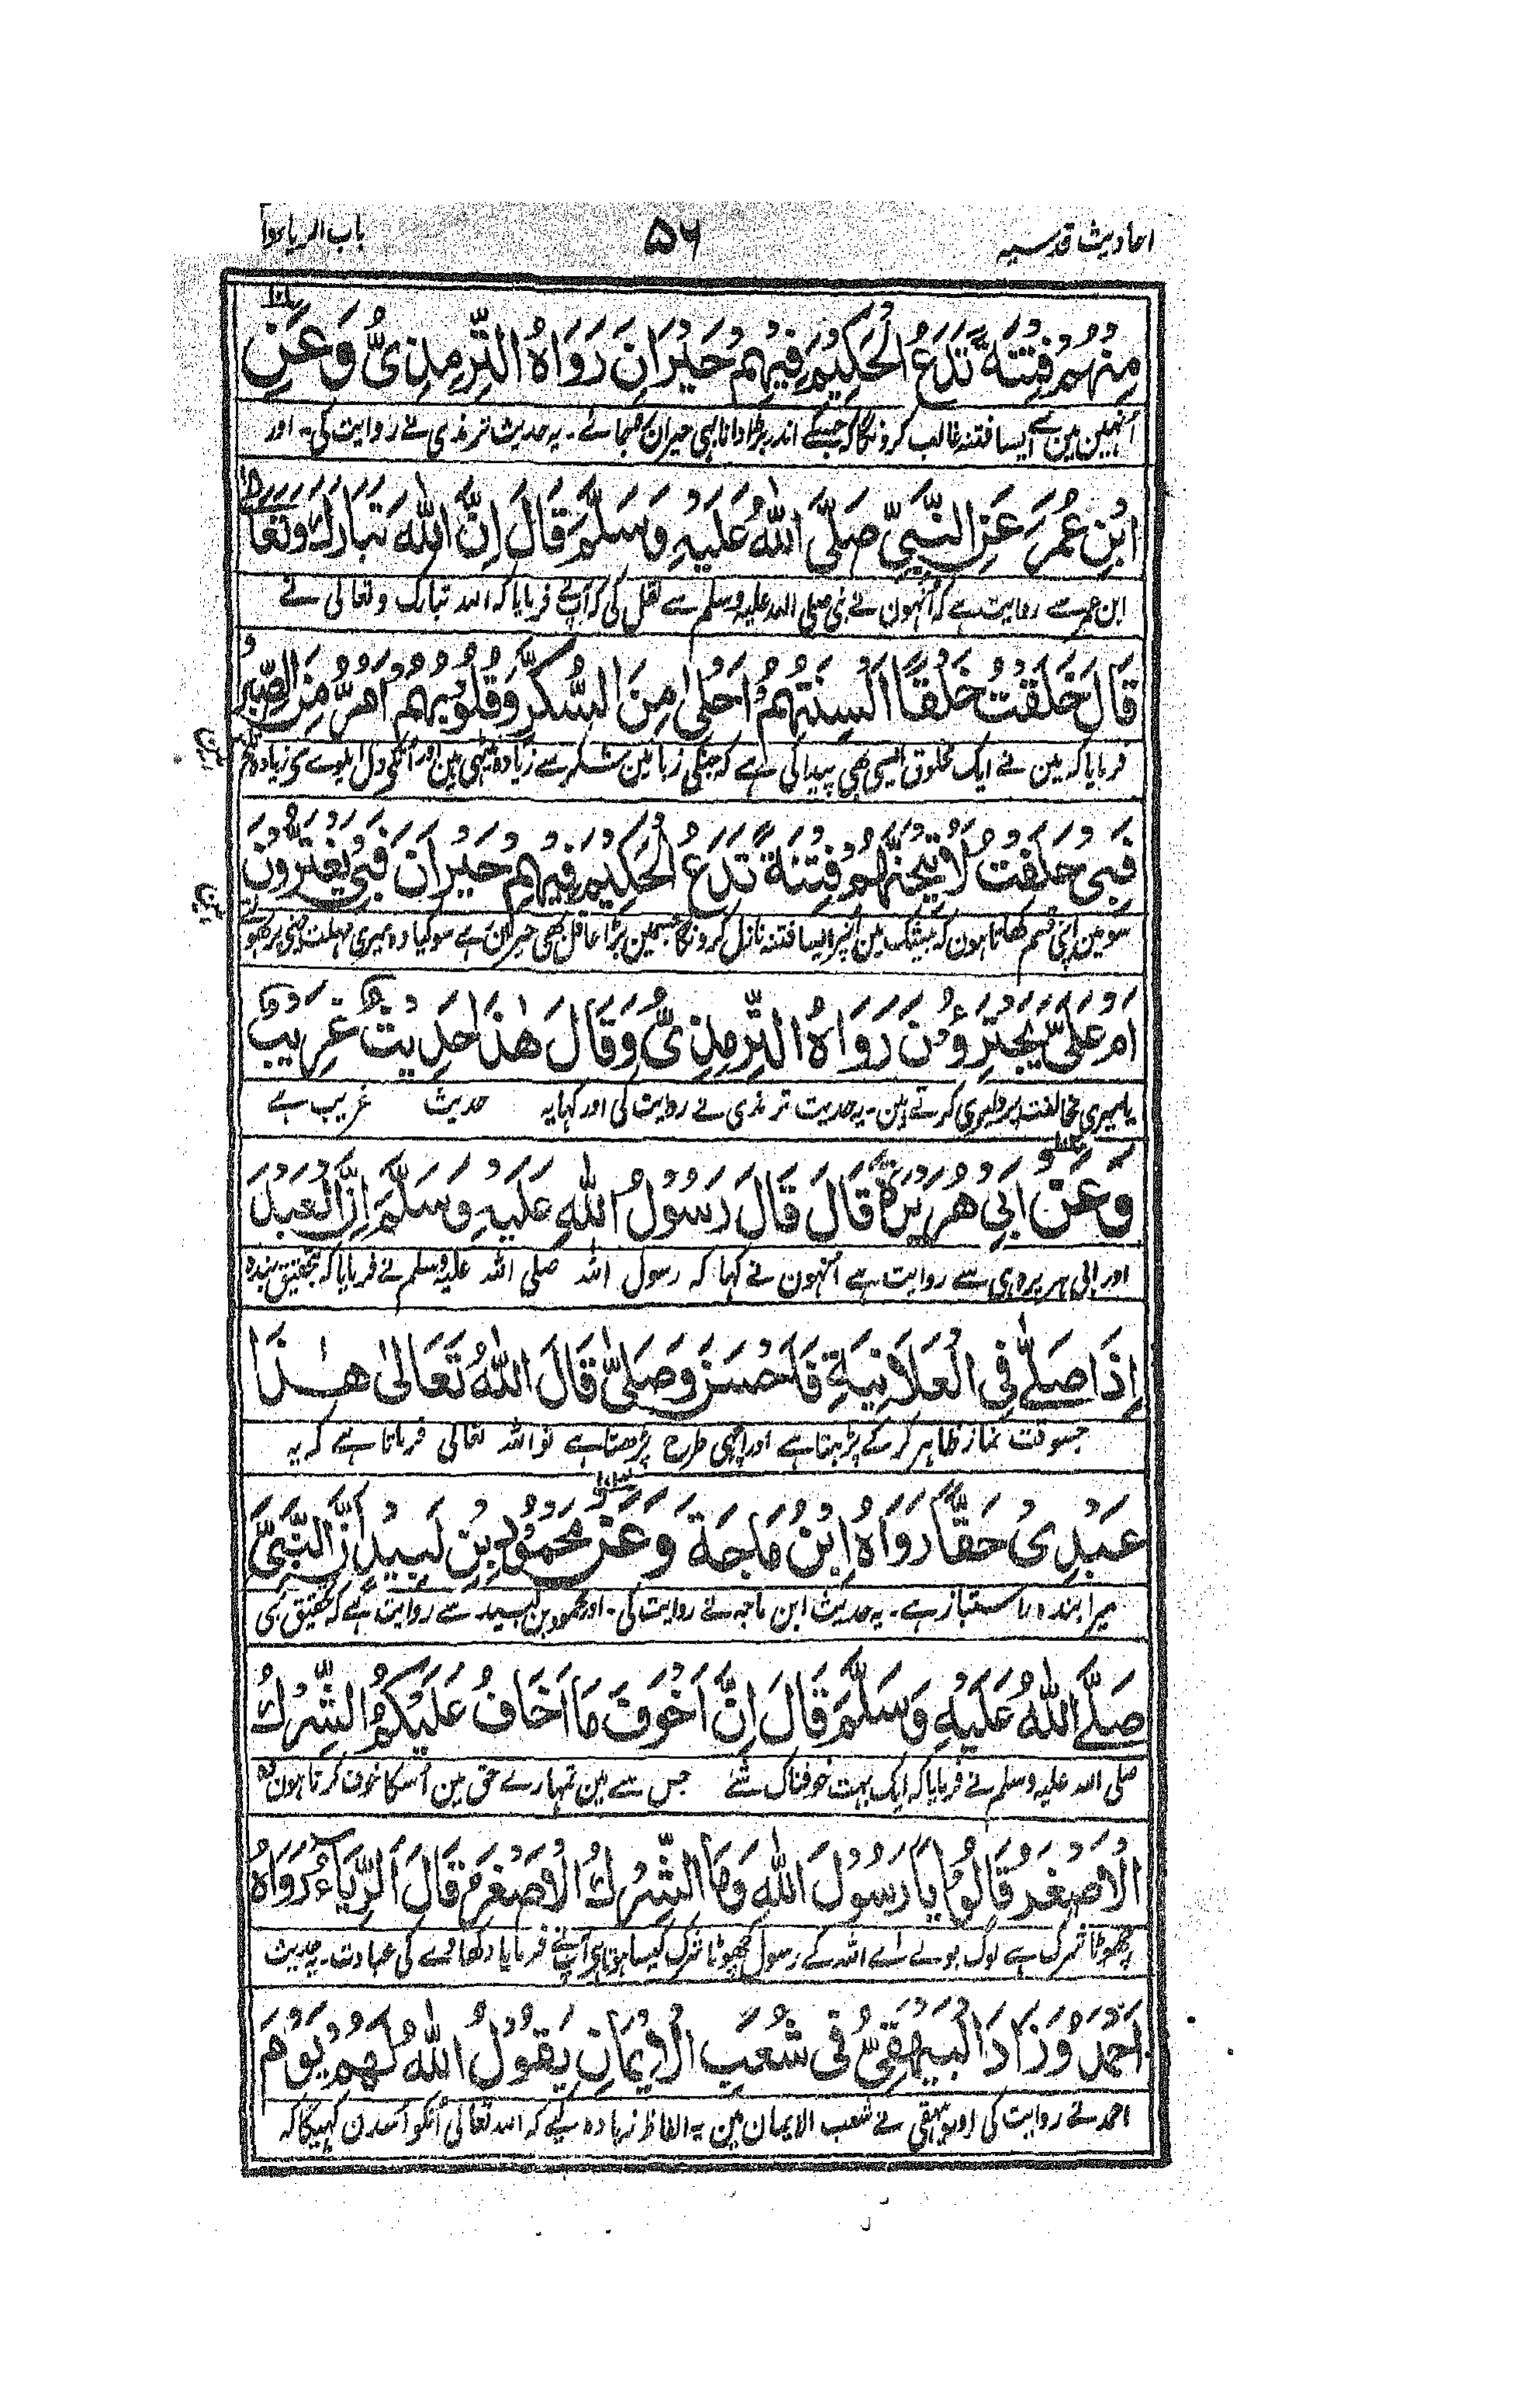 احادیث قدسیہ ۵۶ باب الریاء
مِنْهُمْ فِتْنَةً تَدَعُ الْحَكِيْمَ فِيْهِمْ حَيْرَانَ رَوَاهُ التِّرْمِذِىُّ وَعَنِ
اُنہین مین سے ایسا فتنہ غالب کرونگا کہ جسکے اندر بڑا دانا بہی حیران ہجائے۔ یہ حدیث ترمذی نے روایت کی۔ اور
ابْنِ عُمَرَ عَنِ النَّبِيِّ صَلَّى اللّٰهُ عَلَيْهِ وَسَلَّمَ قَالَ اِنَّ اللّٰهَ تَبَارَكَ وَتَعَالٰى
ابن عمر سے روایت ہے کہ اُنہون نے نبی صلی اللہ علیہ وسلم سے نقل کی کہ آپنے فرمایا کہ اللہ تبارک وتعالی نے
قَالَ خَلَقْتُ خَلْقًا اَلْسِنَتُهُمْ اَحْلٰى مِنَ السُّكَّرِ وَقُلُوْبُهُمْ اَمَرُّ مِنَ الصَّبِرِ
فرمایا کہ مین نے ایک مخلوق ایسی بھی پیدا کی ہے کہ جنکی زبانین شکر سے زیادہ میٹھی ہین اور انکی دل ایلوے سی زیادہ
فَبِىْ حَلَفْتُ لَاُتِيْحَنَّهُمْ فِتْنَةً تَدَعُ الْحَكِيْمَ فِيْهِمْ حَيْرَانَ فَبِىْ يَغْتَرُّوْنَ
سو مین اپنی قسم کھاتا ہون کہ بیشک مین اُنپر ایسا فتنہ نازل کرونگا جسمین بڑا عاقل بھی حیران ہے سو کیا وہ میری مہلت
اَمْ عَلَىَّ يَجْتَرِؤُنَ رَوَاهُ التِّرْمِذِىُّ وَقَالَ هٰذَا حَدِيْثٌ غَرِيْبٌ
یا میری مخالفت پر دلیری کرتے ہین۔ یہ حدیث ترمذی نے روایت کی اور کہا یہ حدیث غریب ہے
وَعَنْ اَبِىْ هُرَيْرَةَ قَالَ قَالَ رَسُوْلُ اللّٰهِ عَلَيْهِ وَسَلَّمَ اِنَّ الْعَبْدَ
اور ابی ہریرہ ہی سے روایت ہے اُنہون نے کہا کہ رسول اللہ صلی اللہ علیہ وسلم نے فرمایا کہ تحقیق بندہ
اِذَا صَلّٰى فِى الْعَلَانِيَةِ فَاَحْسَنَ وَصَلّٰى قَالَ اللّٰهُ تَعَالٰى هٰذَا
جسوقت نماز ظاہر کر کے پڑہتا ہے اور اچھی طرح پڑھتا ہے تو اللہ تعالی فرماتا ہے کہ یہ
عَبْدِىْ حَقًّا رَوَاهُ ابْنُ مَاجَةَ وَعَنْ مَحْمُوْدِ بْنِ لَبِيْدٍ اَنَّ النَّبِىَّ
میرا بندہ راستباز ہے۔ یہ حدیث ابن ماجہ نے روایت کی۔ اور محمود بن لبید سے روایت ہے کہ تحقیق نبی
صَلَّى اللّٰهُ عَلَيْهِ وَسَلَّمَ قَالَ اِنَّ اَخْوَفَ مَا اَخَافُ عَلَيْكُمُ الشِّرْكُ
صلی اللہ علیہ وسلم نے فرمایا کہ ایک بہت خوفناک شے جس سے مین تمہارے حق مین اُسکا خوف کرتا ہون وہ
الْاَصْغَرُ قَالُوْا يَا رَسُوْلَ اللّٰهِ وَمَا الشِّرْكُ الْاَصْغَرُ قَالَ اَلرِّيَاءُ رَوَاهُ
چھوٹا شرک ہے لوگ بولے اے اللہ کے رسول چھوٹا شرک کیسا ہوتا ہے آپنے فرمایا دکھاوے کی عبادت۔ یہ حدیث
اَحْمَدُ وَزَادَ الْبَيْهَقِىُّ فِى شُعَبِ الْاِيْمَانِ يَقُوْلُ اللّٰهُ لَهُمْ يَوْمَ
احمد نے روایت کی اور بیہقی نے شعب الایمان مین یہ الفاظ زیادہ کیے کہ اللہ تعالی اُنکو اُسدن کہیگا کہ